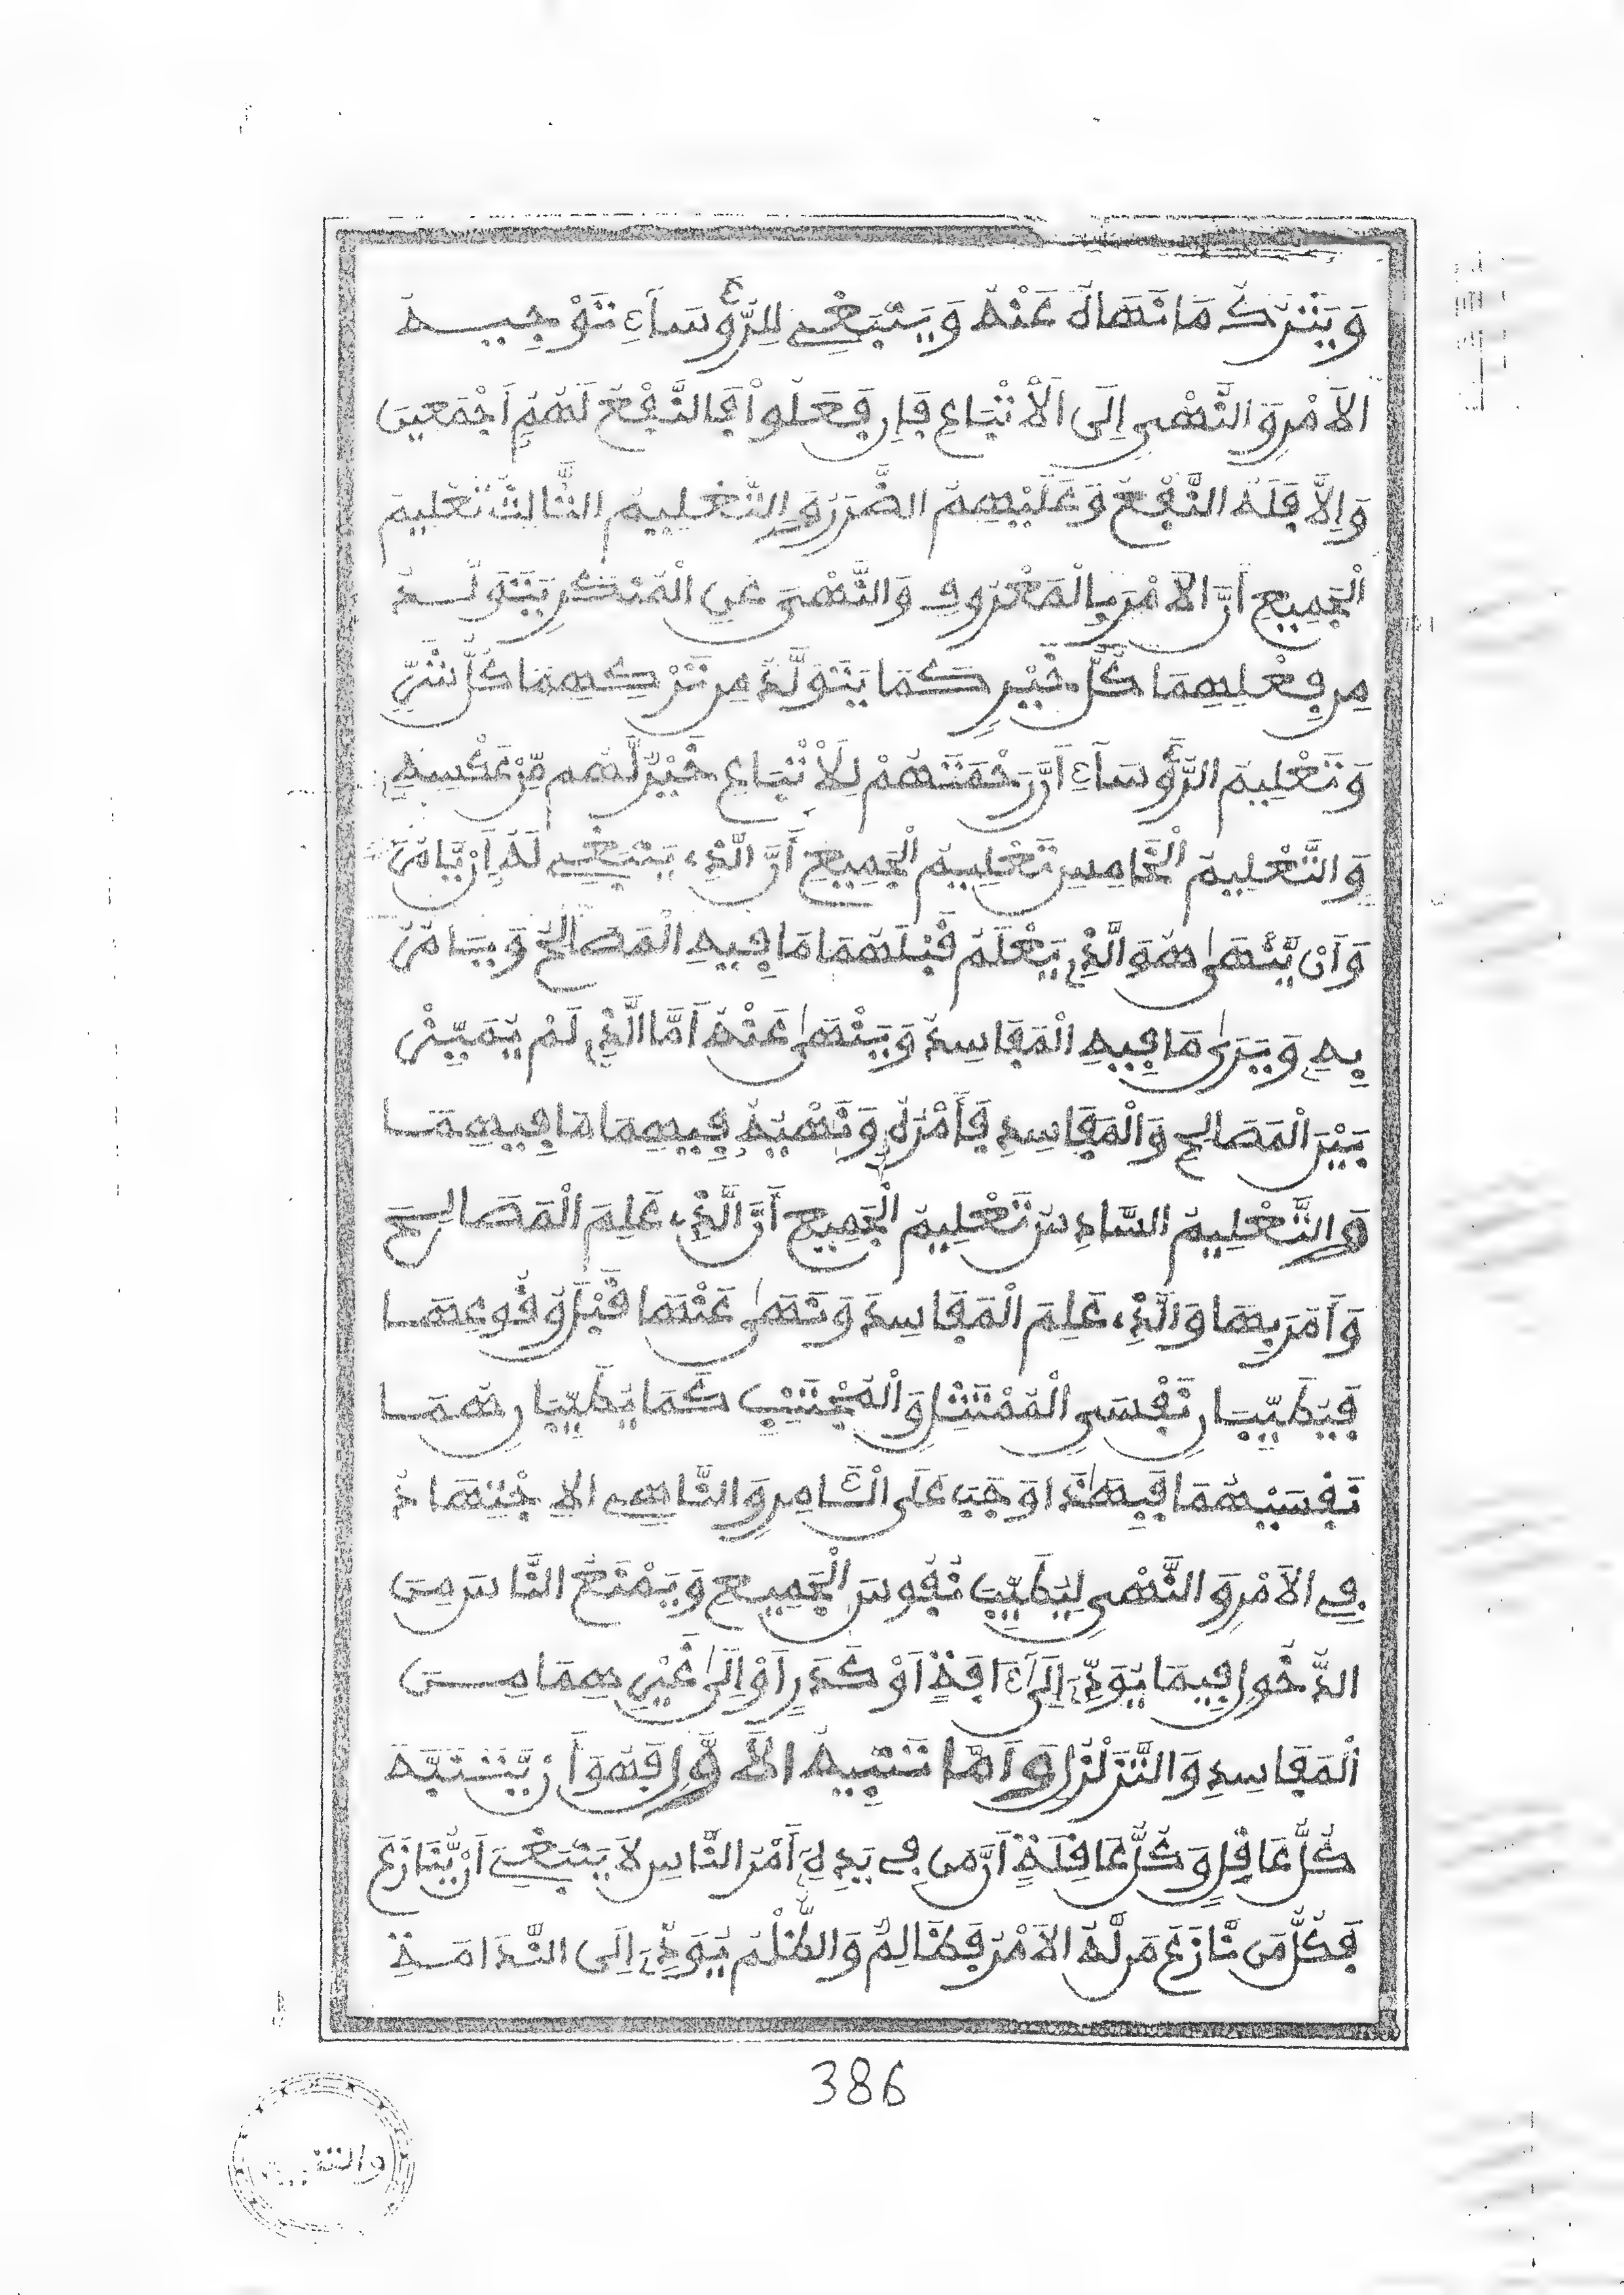 وَيَتْرُكُ مَا نَهَاهُ عَنْهُ وَيَنْبَغِي لِلرُّؤَسَاءِ تَوْجِيهُ
الَامْرِ وَالنَّهْيِ إِلَى الَاتْبَاعِ فَإِن فَعَلُواْ فَالنَّفْعُ لَهُمُ أَجْمَعِينَ
وَإِلاَّ فَلَهُ النَّفْعُ وَعَلَيْهِمُ الضَّرَرُ وَالتَّعْلِيمُ الثَّالِثُ تَعْلِيمُ
الْجَمِيعِ أَنَّ الَامْرَ بِالْمَعْرُوفِ وَالنَّهْيَ عَنِ الْمُنكَرِ يَتَوَلَّدُ
مِن فِعْلِهِمَا كُلُّ خَيْرٍ كَمَا يَتَوَلَّدُ مِن تَرْكِهِمَا كُلُّ شَرٍّ
وَتَعْلِيمُ الرُّؤَسَاءِ أَنَّ رَحْمَتَهُمْ لِلَاتْبَاعِ خَيْرٌ لَّهُم مِّنْ عَكْسِهِ
وَالتَّعْلِيمُ الْخَامِسُ تَعْلِيمُ الْجَمِيعِ أَنَّ الَّذِي يَنبَغِي لَهُ أَنْ يَّامُرَ
وَأَنْ يَّنْهَى هُوَ الَّذِي يَعْلَمُ قَبْلَهُمَا مَا فِيهِ الْمَصَالِحُ وَيَامُرُ
بِهِ وَيَرَى مَا فِيهِ الْمَفَاسِدُ وَيَنْهَى عَنْهُ أَمَّا الَّذِي لَمْ يُمَيِّزْ
بَيْنَ الْمَصَالِحِ وَالْمَفَاسِدِ فَأَمْرُهُ وَنَهْيُهُ فِيهِمَا مَا فِيهِمَا
وَالتَّعْلِيمُ السَّادِسُ تَعْلِيمُ الْجَمِيعِ أَنَّ الَّذِي عَلِمَ الْمَصَالِحَ
وَأَمَرَ بِهَا وَالَّذِي عَلِمَ الْمَفَاسِدَ وَنَهَى عَنْهَا قَبْلَ وُقُوعِهَا
فَيُطَيِّبَانِ نَفْسَيِ الْمُمْتَثِلِ وَالْمُجْتَنِبِ كَمَا يُطَيِّبَانِ هُمَا
نَفْسَيْهُمَا فَبِهَذَا وَجَبَ عَلَى الْأَمِرِ وَالنَّاهِي الِاجْتِهَادُ
فِي الَامْرِ وَالنَّهْيِ لِيُطَيِّبَ نُفُوسَ الْجَمِيعِ وَيَمْنَعُ النَّاسَ مِنَ
الدُّخُولِ فِيمَا يُوَدِّي إِلَى ءَافَةٍ أَوْ كَدَرٍ أَوْ إِلَى غَيْرِهِمَا مِنَ
الْمَفَاسِدِ وَالتَّزَلْزُلِ وَأَمَّا تَنْبِيهُ الَاوَّلِ فَهُوَ أَنْ يَّتَنَبَّهَ
كُلُّ عَاقِلٍ وَكُلُّ عَاقِلَةٍ أَنَّ مَن فِي يَدِهِ أَمْرُ النَّاسِ لَا يَنبَغِي أَنْ يُّنَازَعَ
فَكُلُّ مَن نَّازَعَ مَن لَّهُ الَامْرُ فَظَالِمٌ وَالظُّلْمُ يُوَدِّي إِلَى النَّدَامَةِ
386